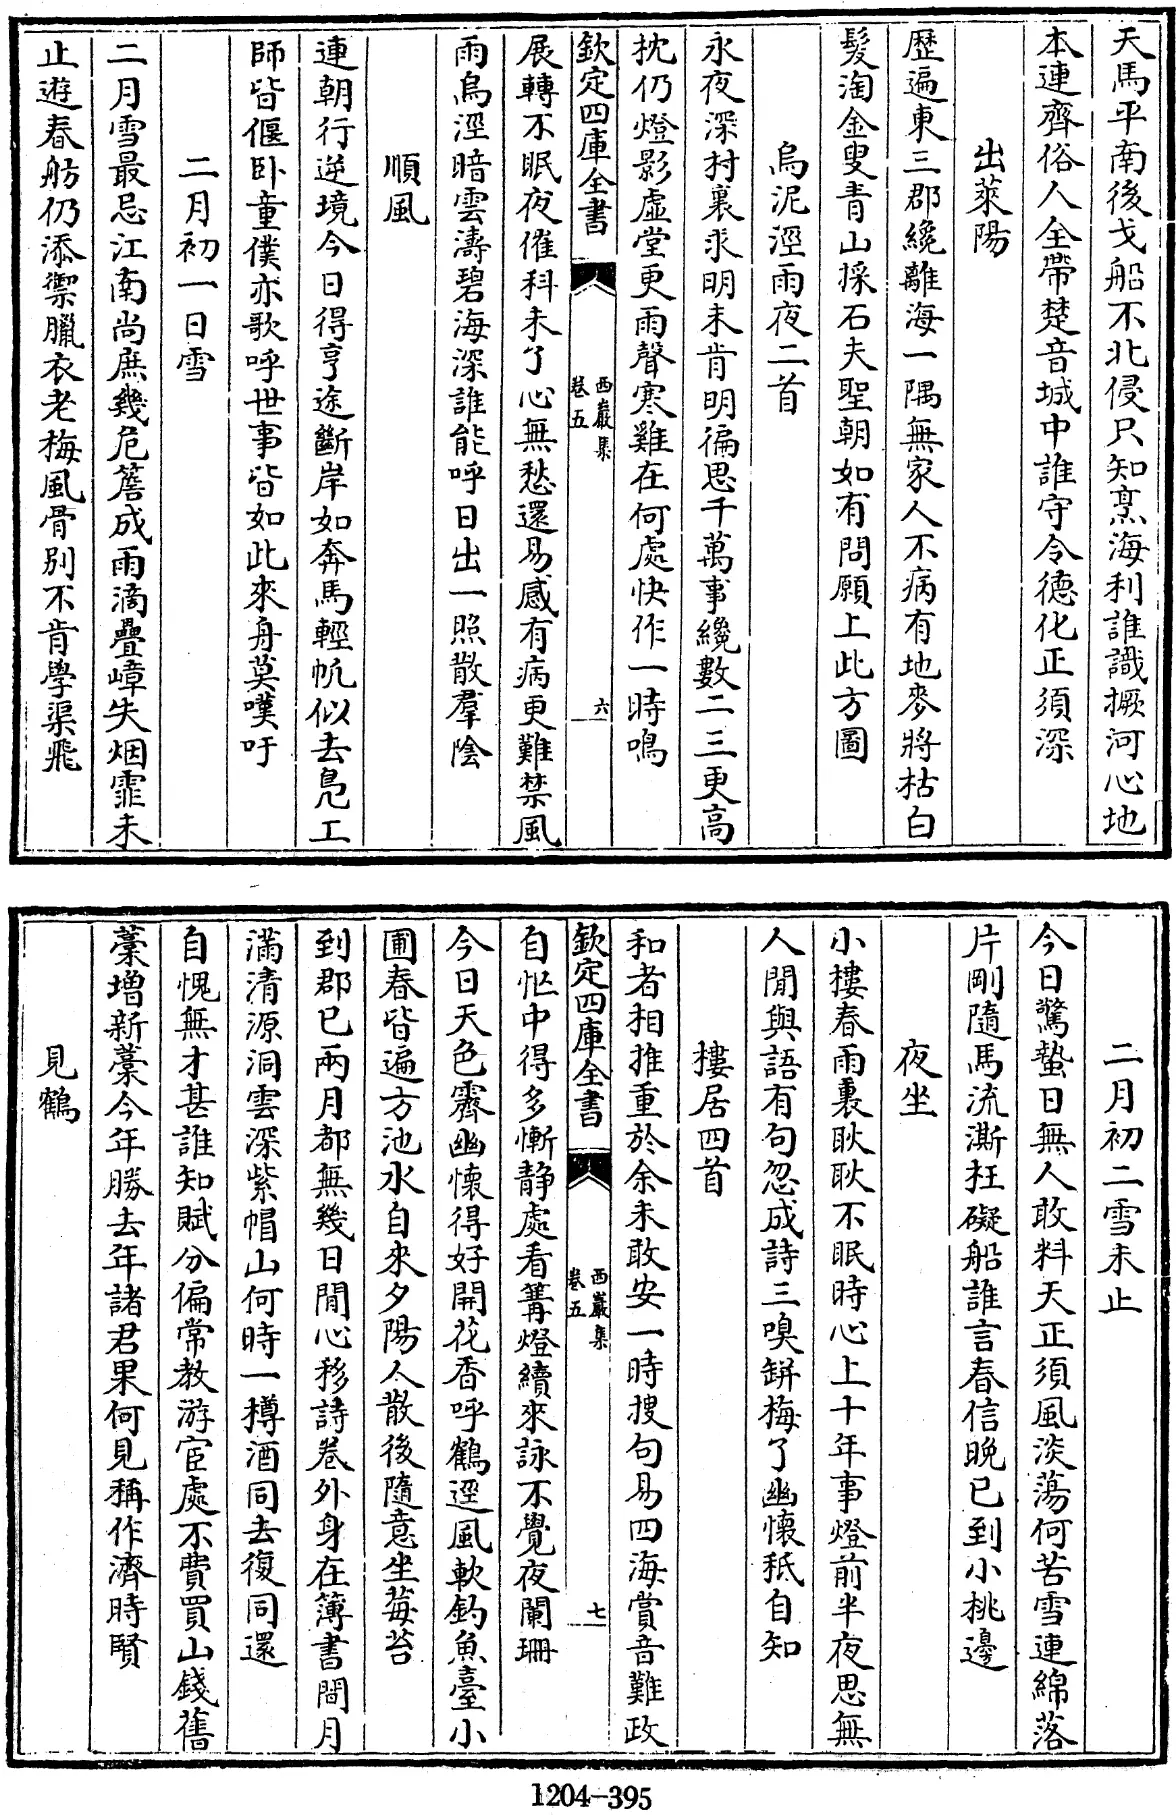 天馬平南後戈船不北侵只知烹海利誰識撅河心地
本連齊俗人全帶楚音城中誰守令德化正須深
出萊陽
歴遍東三郡纔離海一隅無家人不病有地麥將枯白
髮淘金叟青山採石夫聖朝如有問願上此方圖
烏泥涇雨夜二首
永夜深村裏求明未肯明徧思千萬事纔數二三更高
枕仍燈影虛堂更雨聲寒雞在何處快作一時鳴
欽定四庫全書
西巖集
卷五
六
展轉不眠夜催科未了心無愁還易感有病更難禁風
雨烏涇暗雲濤碧海深誰能呼日出一照散羣陰
順風
連朝行逆境今日得亨途斷岸如奔馬輕帆似去鳬工
師皆偃卧童僕亦歌呼世事皆如此來舟莫嘆吁
二月初一日雪
二月雪最忌江南尚庶幾危簷成雨滴疊嶂失烟霏未
止遊春舫仍添禦臘衣老梅風骨别不肯學渠飛
二月初二雪未止
今日驚蟄日無人敢料天正須風淡蕩何苦雪連綿落
片剛隨馬流澌枉礙船誰言春信晚已到小桃邊
夜坐
小樓春雨裏耿耿不眠時心上十年事燈前半夜思無
人閒與語有句忽成詩三嗅缾梅了幽懷秖自知
樓居四首
和者相推重於余未敢安一時搜句易四海賞音難政
欽定四庫全書
西巖集
卷五
七
自忙中得多慚静處看篝燈續來詠不覺夜闌珊
今日天色霽幽懷得好開花香呼鶴逕風軟釣魚臺小
圃春皆遍方池水自來夕陽人散後隨意坐莓苔
到郡已兩月都無幾日閒心移詩卷外身在簿書間月
滿清源洞雲深紫帽山何時一樽酒同去復同還
自愧無才甚誰知賦分偏常教游宦處不費買山錢舊
藁增新藁今年勝去年諸君果何見稱作濟時賢
見鶴
1204-395